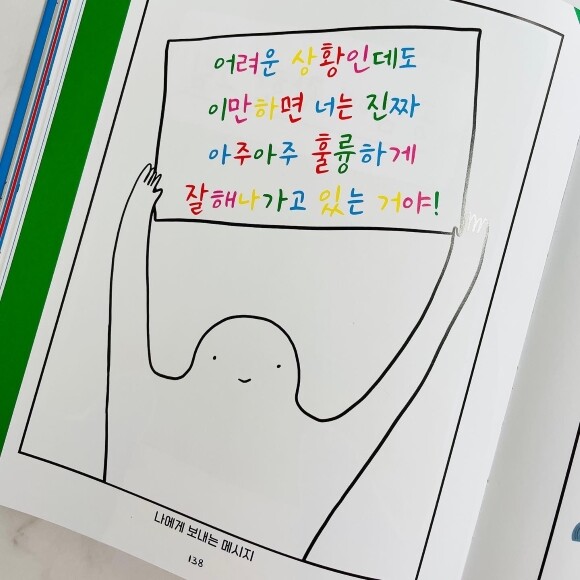 어려운 상황인데도
이만하면 너는 진짜
아주아주 훌륭하게
잘해나가고 있는 거야!
나에게 보내는 메시지
138